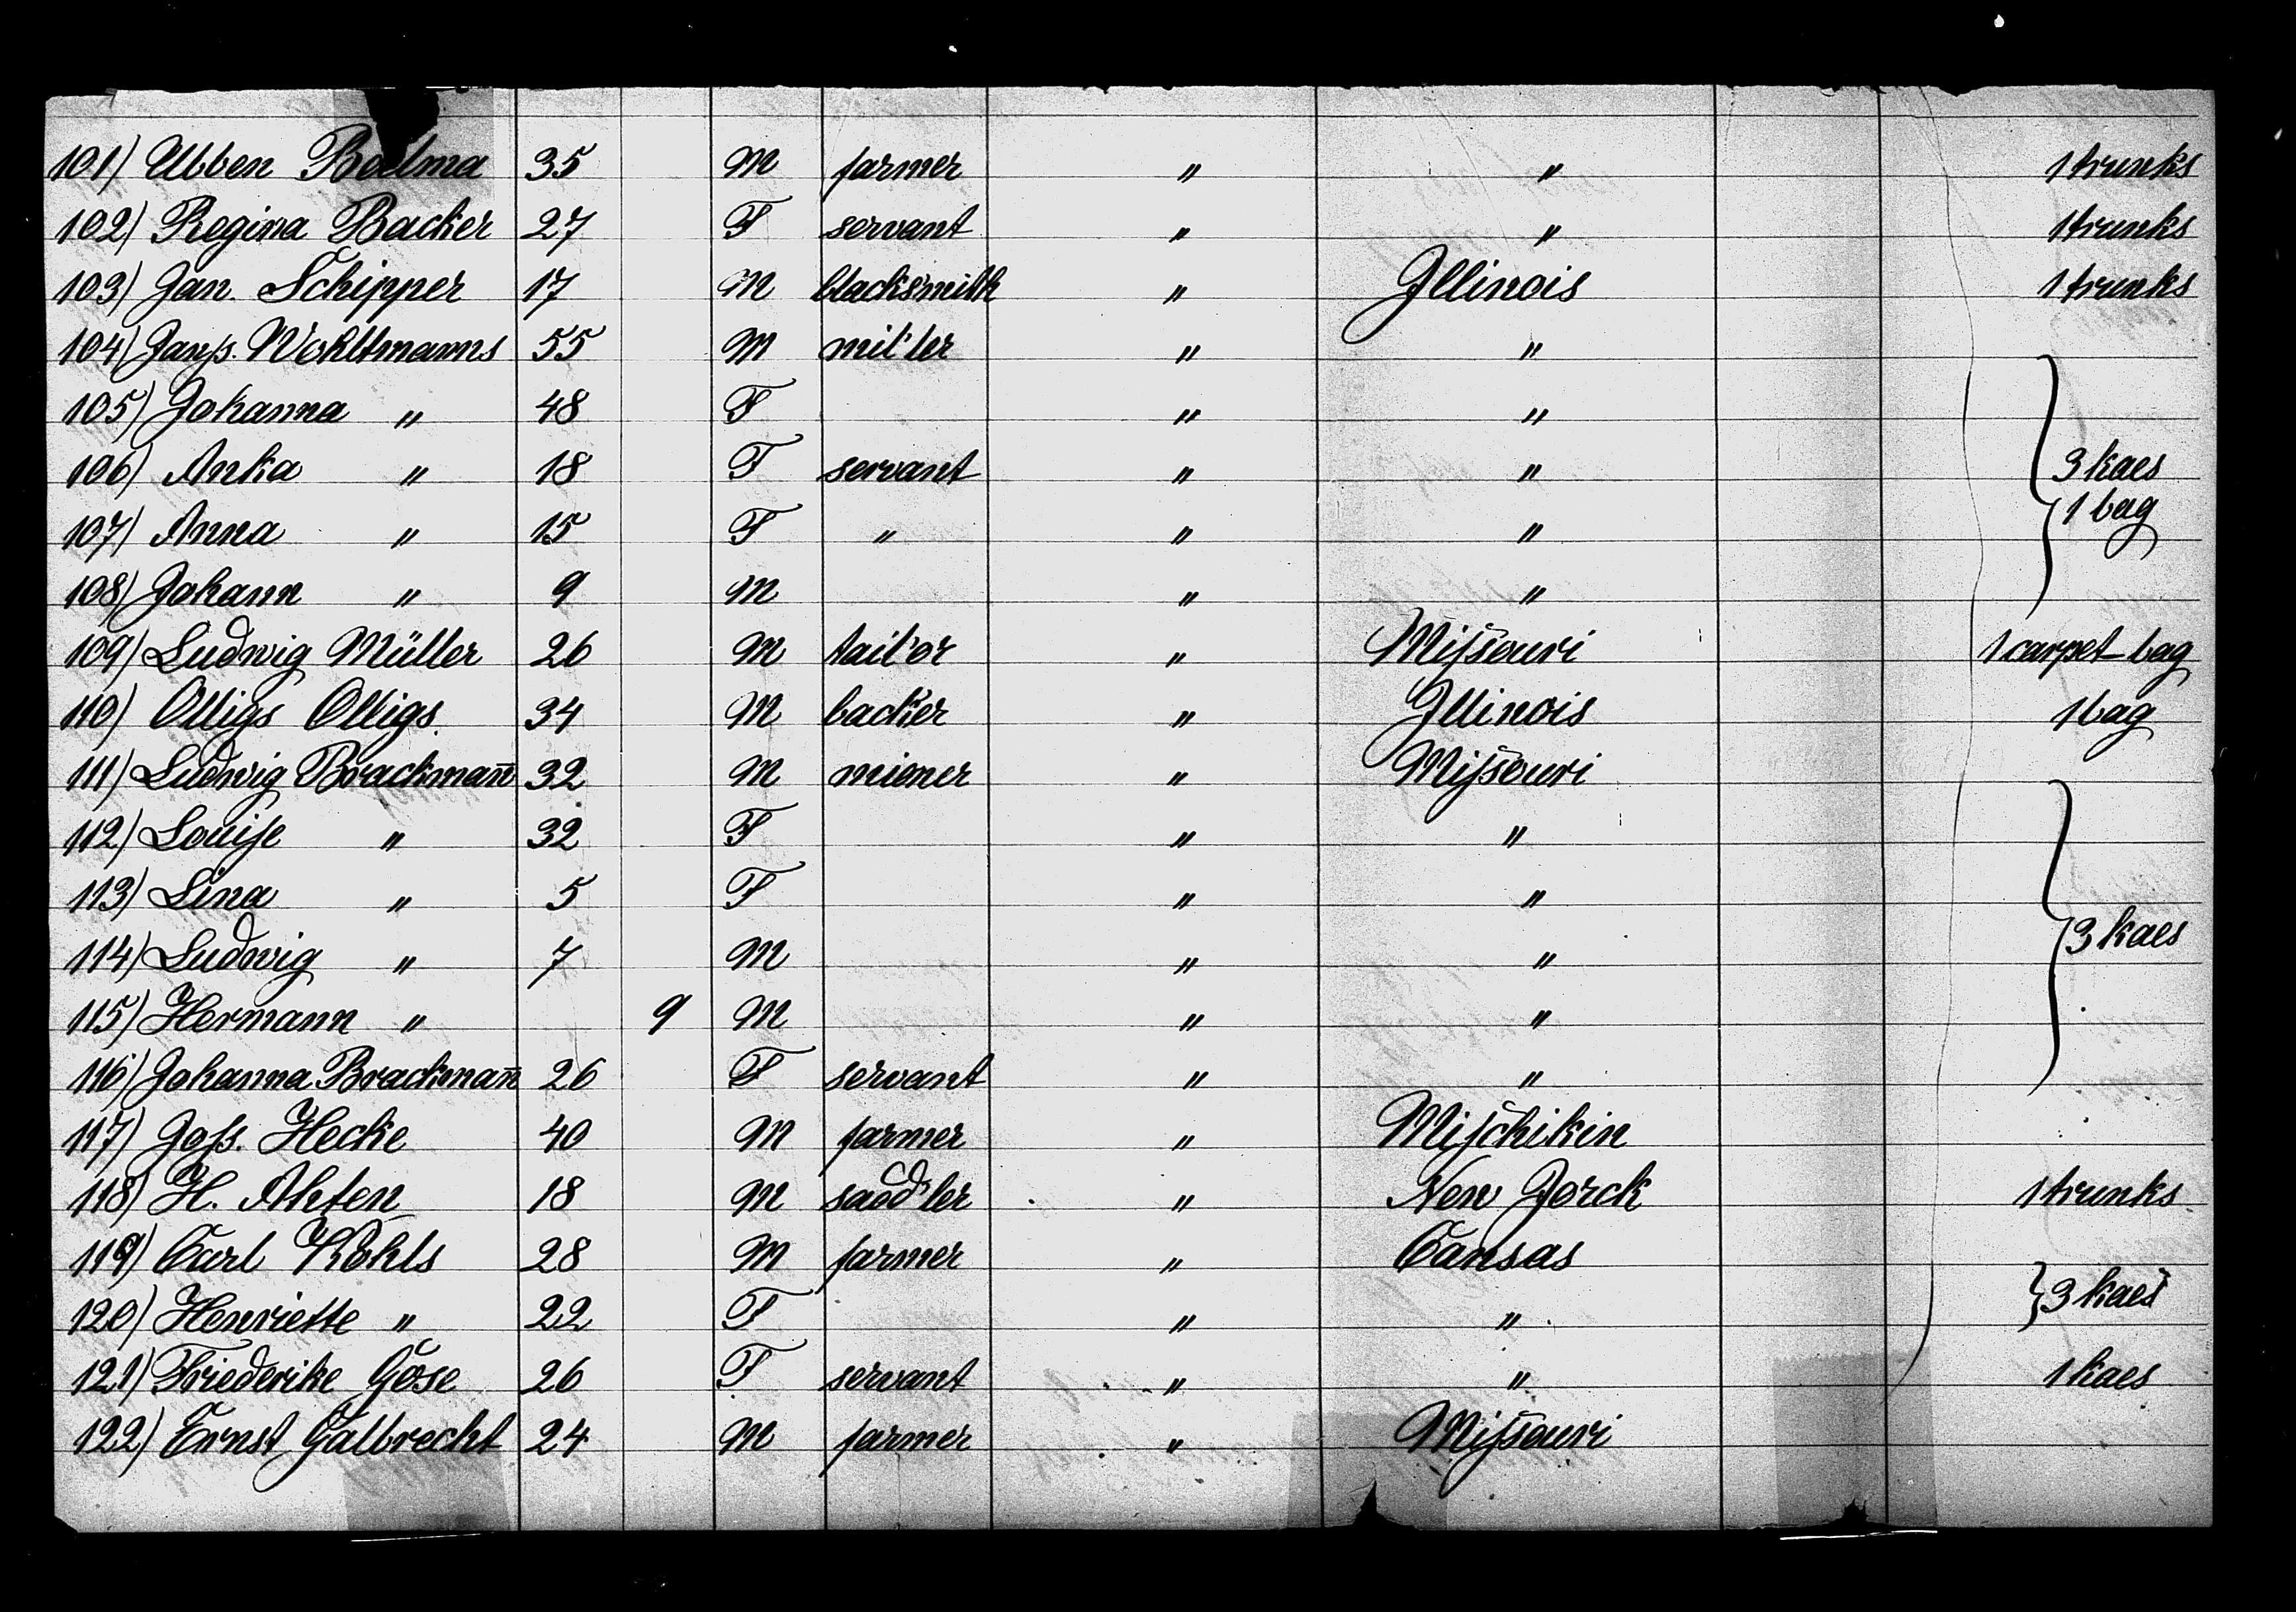 101) Ubben Boelma 35 M farmer " " 1 trunks
102) Regina Backer 27 F servant " " 1 trunks
103) Jan. Schipper 17 M blacksmith " Jllinois 1 trunks
104) Janſs. Wohltmanns 55 M miller " "
105) Johanna " 48 F " "
106) Anka " 18 F servant " " 3 kaes
107) Anna " 15 F " " " 1 bag
108) Johann " 9 M " "
109) Ludwig Müller 26 M tailor " Miſsouri 1 carpet bag
110) Olligs Olligs. 34 M backer " Jllinois 1 bag
111) Ludwig Brackman̄ 32 M miener " Miſsouri
112) Louiſe " 32 F " "
113) Lina " 5 F " "
114) Ludwig " 7 M " " 3 kaes
115) Hermann " 9 M " "
116) Johanna Brackman̄ 26 F servant " "
117) Joſs. Hecke 40 M farmer " Miſchikin
118) H. Ahten 18 M saddler " New Jorck 1 trunks
119) Carl Kohls 28 M farmer " Cansas
120) Henriette " 22 F " " 3 kaes
121) Friederike Göse 26 F servant " " 1 kaes
122) Ernst Galbrecht 24 M farmer " Miſsouri